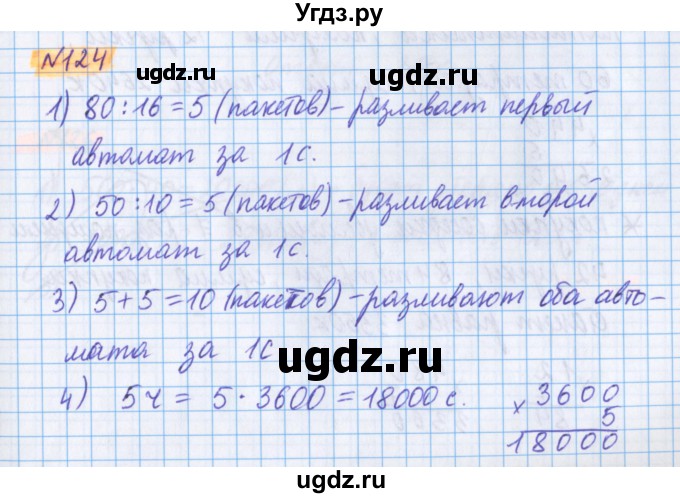 Угдз.ру
№124
ugdz.ru
ugdz.ru
1) 80 : 16 = 5 (пакетов) – разливает первый
автомат за 1с.
ugdz.ru
2) 50 : 10 = 5 (пакетов) – разливает второй
автомат за 1с.
ugdz.ru
ugdz.ru
3) 5 + 5 = 10 (пакетов) – разливают оба авто–
мата за 1с
ugdz.ru
4) 5ч = 5 · 3600 = 18000 с.
× 3600
5
18000
ugdz.ru
ugdz.ru